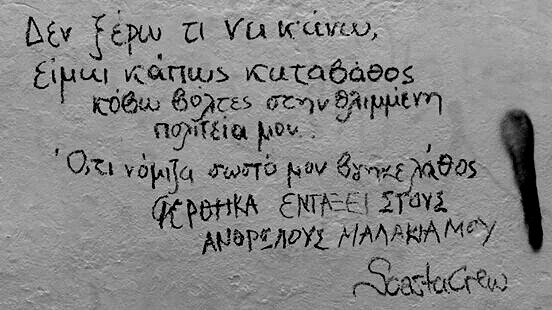 Δεν ξέρω τι να κάνω,
είμαι κάπως καταβάθος
κόβω βόλτες στην θλιμμένη
πολιτεία μου.
Ό,τι νόμιζα σωστό μου βγήκε λάθος
ΦΕΡΘΗΚΑ ΕΝΤΑΞΕΙ ΣΤΟΥΣ
ΑΝΘΡΩΠΟΥΣ ΜΑΛΑΚΙΑ ΜΟΥ
SoastaCrew